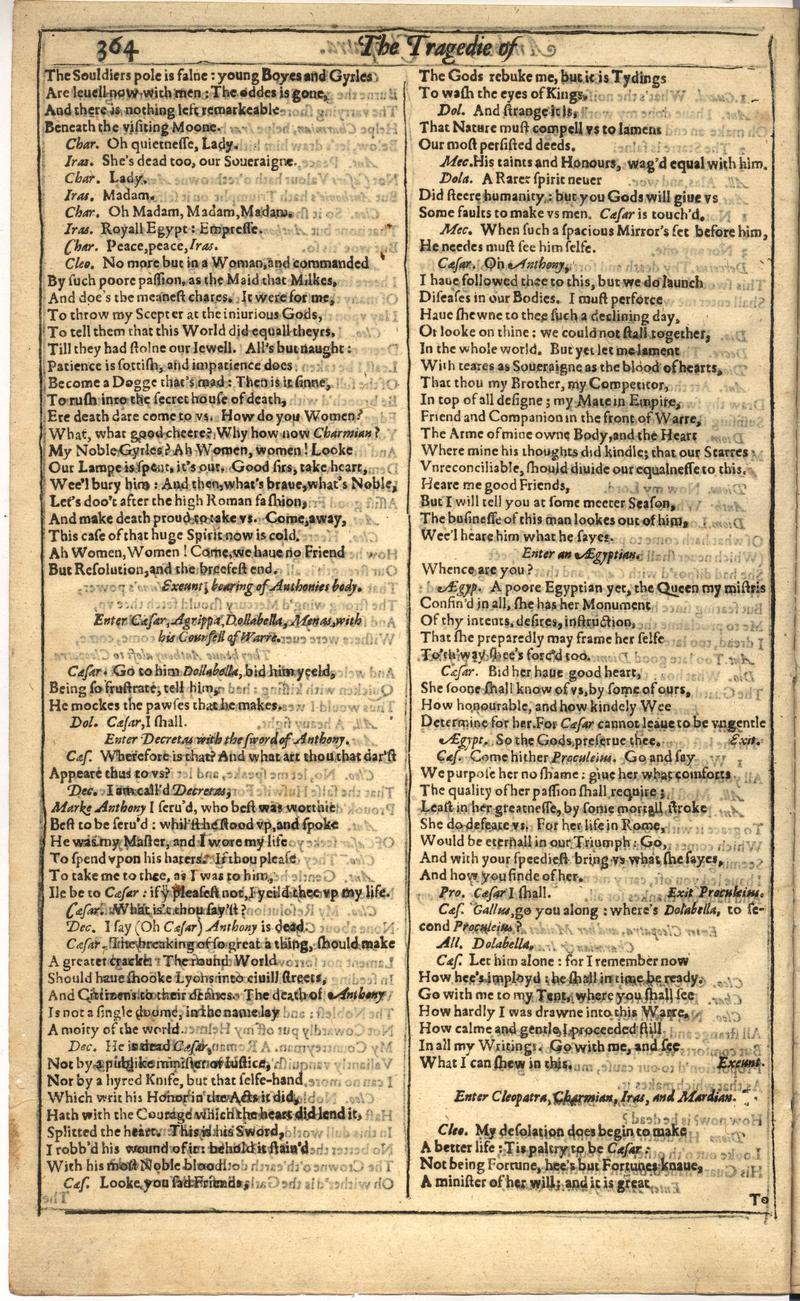 364
The Tragedie of
The Souldiers pole is falne: young Boyes and Gyrles
Are leuell now with men: The oddes is gone,
And there is nothing left remarkeable
Beneath the visiting Moone.
Char. Oh quietnesse, Lady.
Iras. She's dead too, our Soueraigne.
Char. Lady.
Iras. Madam.
Char. Oh Madam, Madam, Madam.
Iras. Royall Egypt: Empresse.
Char. Peace, peace, Iras.
Cleo. No more but in a Woman, and commanded
By such poore passion, as the Maid that Milkes,
And doe's the meanest chares. It were for me,
To throw my Scepter at the iniurious Gods,
To tell them that this World did equall theyrs,
Till they had stolne our Iewell. All's but naught:
Patience is sottish, and impatience does
Become a Dogge that's mad: Then is it sinne,
To rush into the secret house of death,
Ere death dare come to vs. How do you Women?
What, what good cheere? Why how now Charmian?
My Noble Gyrles? Ah Women, women! Looke
Our Lampe is spent, it's out. Good sirs, take heart,
Wee'l bury him: And then, what's braue, what's Noble,
Let's doo't after the high Roman fashion,
And make death proud to take vs. Come, away,
This case of that huge Spirit now is cold.
Ah Women, Women! Come, we haue no Friend
But Resolution, and the breefest end.
Exeunt, bearing of Anthonies body.
Enter Cæsar, Agrippa, Dollabella, Menas, with
his Counsell of Warre.
Cæsar. Go to him Dollabella, bid him yeeld,
Being so frustrate, tell him,
He mockes the pawses that he makes.
Dol. Cæsar, I shall.
Enter Decretas with the sword of Anthony.
Cæs. Wherefore is that? And what art thou that dar'st
Appeare thus to vs?
Dec. I am call'd Decretas,
Marke Anthony I seru'd, who best was worthie
Best to be seru'd: whil'st he stood vp, and spoke
He was my Master, and I wore my life
To spend vpon his haters. If thou please
To take me to thee, as I was to him,
Ile be to Cæsar: if ẏ pleasest not, I yeild thee vp my life.
Cæsar. What is't thou say'st?
Dec. I say (Oh Cæsar) Anthony is dead.
Cæsar. The breaking of so great a thing, should make
A greater cracke. The round World
Should haue shooke Lyons into ciuill streets,
And Cittizens to their dennes. The death of Anthony
Is not a single doome, in the name lay
A moity of the world.
Dec. He is dead Cæsar,
Not by a publike minister of Iustice,
Nor by a hyred Knife, but that selfe-hand
Which writ his Honor in the Acts it did,
Hath with the Courage which the heart did lend it,
Splitted the heart. This is his Sword,
I robb'd his wound of it: behold it stain'd
With his most Noble blood.
Cæs. Looke you sad Friends,
The Gods rebuke me, but it is Tydings
To wash the eyes of Kings.
Dol. And strange it is,
That Nature must compell vs to lament
Our most persisted deeds.
Mec. His taints and Honours, wag'd equal with him.
Dola. A Rarer spirit neuer
Did steere humanity: but you Gods will giue vs
Some faults to make vs men. Cæsar is touch'd.
Mec. When such a spacious Mirror's set before him,
He needes must see him selfe.
Cæsar. Oh Anthony,
I haue followed thee to this, but we do launch
Diseases in our Bodies. I must perforce
Haue shewne to thee such a declining day,
Or looke on thine: we could not stall together,
In the whole world. But yet let me lament
With teares as Soueraigne as the blood of hearts,
That thou my Brother, my Competitor,
In top of all designe; my Mate in Empire,
Friend and Companion in the front of Warre,
The Arme of mine owne Body, and the Heart
Where mine his thoughts did kindle; that our Starres
Vnreconciliable, should diuide our equalnesse to this.
Heare me good Friends,
But I will tell you at some meeter Season,
The businesse of this man lookes out of him,
Wee'l heare him what he sayes.
Enter an Ægyptian.
Whence are you?
Ægyp. A poore Egyptian yet, the Queen my mistris
Confin'd in all, she has her Monument
Of thy intents, desires, instruction,
That she preparedly may frame her selfe
To'th'way shee's forc'd too.
Cæsar. Bid her haue good heart,
She soone shall know of vs, by some of ours,
How honourable, and how kindely Wee
Determine for her. For Cæsar cannot leaue to be vngentle
Ægypt. So the Gods preserue thee. Exit.
Cæs. Come hither Proculeius. Go and say
We purpose her no shame: giue her what comforts
The quality of her passion shall require;
Least in her greatnesse, by some mortall stroke
She do defeate vs. For her life in Rome,
Would be eternall in our Triumph: Go,
And with your speediest bring vs what she sayes,
And how you finde of her.
Pro. Cæsar I shall. Exit Proculeius.
Cæs. Gallus, go you along: where's Dolabella, to se-
cond Proculeius?
All. Dolabella,
Cæs. Let him alone: for I remember now
How hee's imployd: he shall in time be ready.
Go with me to my Tent, where you shall see
How hardly I was drawne into this Warre,
How calme and gentle I proceeded still
In all my Writings. Go with me, and see
What I can shew in this. Exeunt.
Enter Cleopatra, Charmian, Iras, and Mardian.
Cleo. My desolation does begin to make
A better life: Tis paltry to be Cæsar:
Not being Fortune, hee's but Fortunes knaue,
A minister of her will: and it is great
To